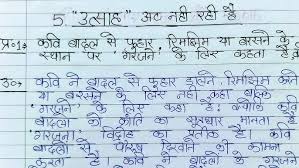 5. "उत्साह" अट नहीं रही है
प्र०1 कवि बादल से फुहार, रिमझिम या बरसने के
स्थान पर 'गरजने' के लिए कहता है,
उ०→ कवि ने बादल से फुहार डालने, रिमझिम करने
या बरसने के लिए नहीं कहा बल्कि
'गरजने' के लिए कहा है। क्योंकि कवि
बादलों को क्रांति का सूत्रधार मानता है
'गरजना' विद्रोह का प्रतीक है। कवि
बादलों से पौरुष दिखाने की कामना
करता है। कवि ने बादलों के